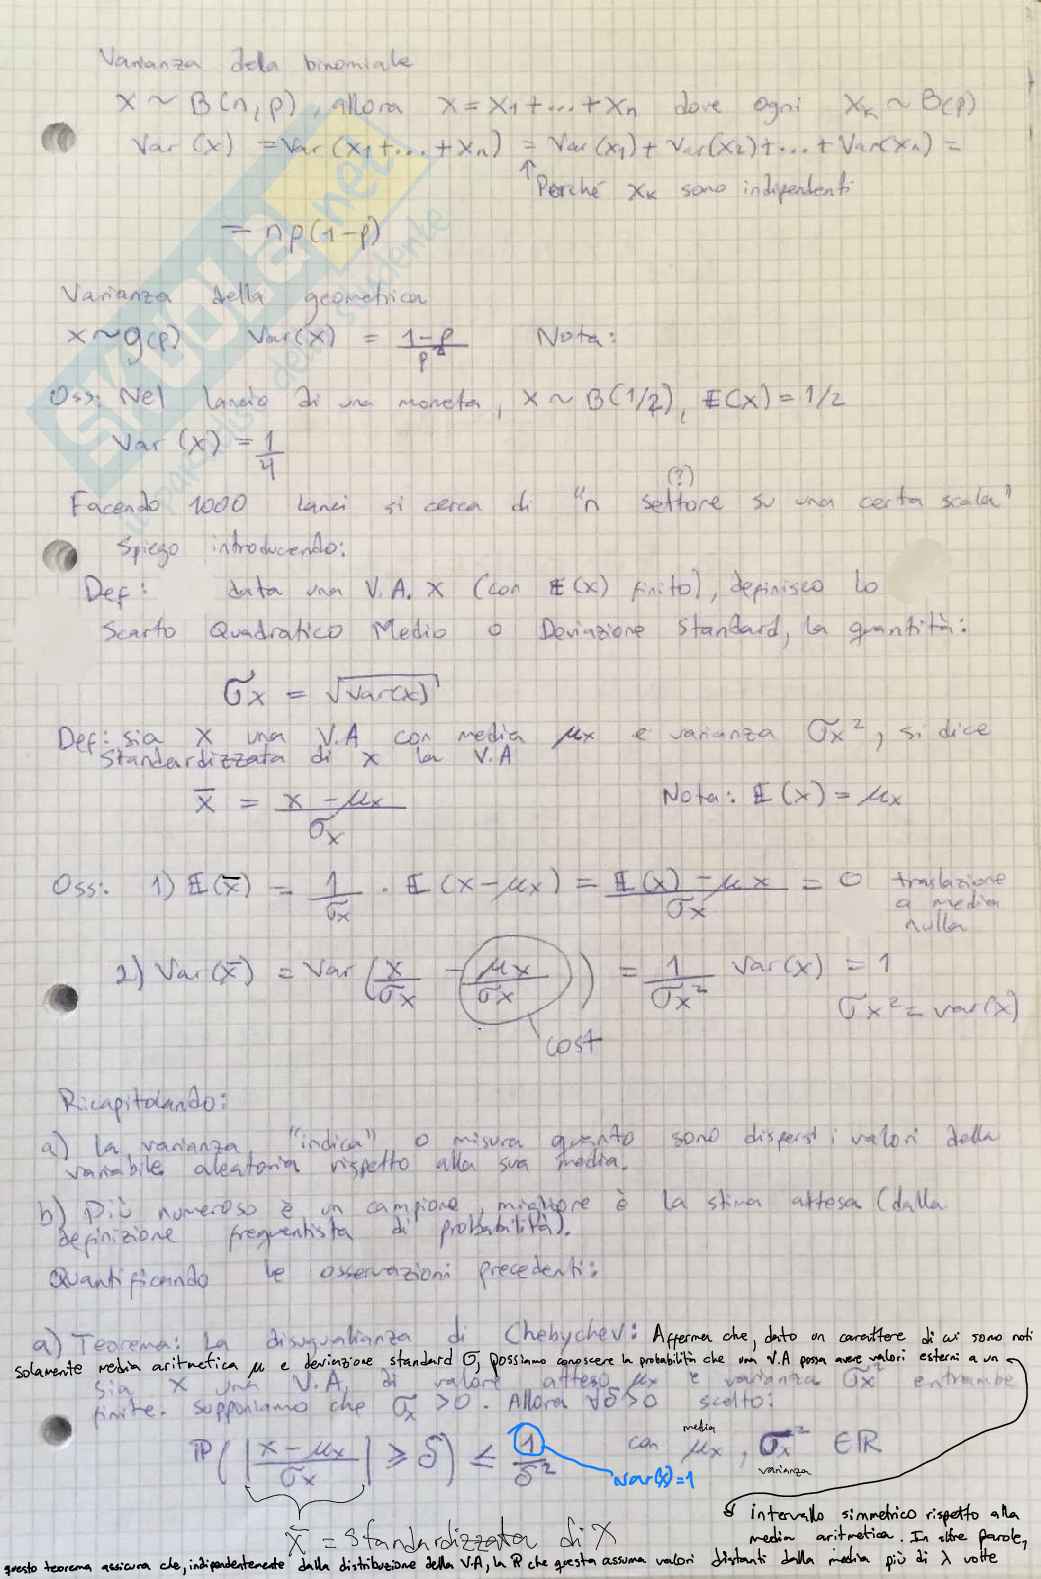 Varianza della binomiale
X ~ B(n, p), allora X = X1 + ... + Xn dove ogni Xk ~ B(p)
Var (X) = Var (X1 + ... + Xn) = Var(X1) + Var(X2) + ... + Var(Xn) =
↑ Perché Xk sono indipendenti
= np(1-p)
Varianza della geometrica
X ~ g(p) Var(X) = 1-p / p² Nota:
Oss: Nel lancio di una moneta, X ~ B(1/2), E(X) = 1/2
Var (X) = 1/4
(?)
Facendo 1000 lanci si cerca di "n settore su una certa scala"
Spiego introducendo:
Def: data una V.A. X (con E(X) finito), definisco lo
Scarto Quadratico Medio o Deviazione Standard, la quantità:
σx = √Var(X)
Def: sia X una V.A con media μx e varianza σx², si dice
Standardizzata di X la V.A
X̄ = X - μx / σx Nota: E(X) = μx
Oss: 1) E(X̄) = 1/σx · E(X - μx) = E(X) - μx / σx = 0 traslazione
a media
nulla
2) Var(X̄) = Var(X/σx - μx/σx) = 1/σx² Var(X) = 1
σx² = var(X)
cost
Ricapitolando:
a) La varianza "indica" o misura quanto sono dispersi i valori della
variabile aleatoria rispetto alla sua media.
b) Più numeroso è un campione, migliore è la stima attesa (dalla
definizione frequentista di probabilità).
Quantificando le osservazioni precedenti:
a) Teorema: La disuguaglianza di Chebychev: Afferma che, dato un carattere di cui sono noti
solamente media aritmetica μ e deviazione standard σ, possiamo conoscere la probabilità che una V.A possa avere valori esterni a un
Sia X una V.A. di valore atteso μx e varianza σx² entrambe
finite. Supponiamo che σx > 0. Allora ∀δ>0 scelto:
P( | X - μx / σx | ≥ δ ) ≤ 1/δ² con μx, σx² ∈ R
media
varianza
Var(X̄)=1
intervallo simmetrico rispetto alla
X̄ = Standardizzata di X
media aritmetica. In altre parole,
questo teorema assicura che, indipendentemente dalla distribuzione della V.A, la P che questa assuma valori distanti dalla media più di λ volte
skuola.net